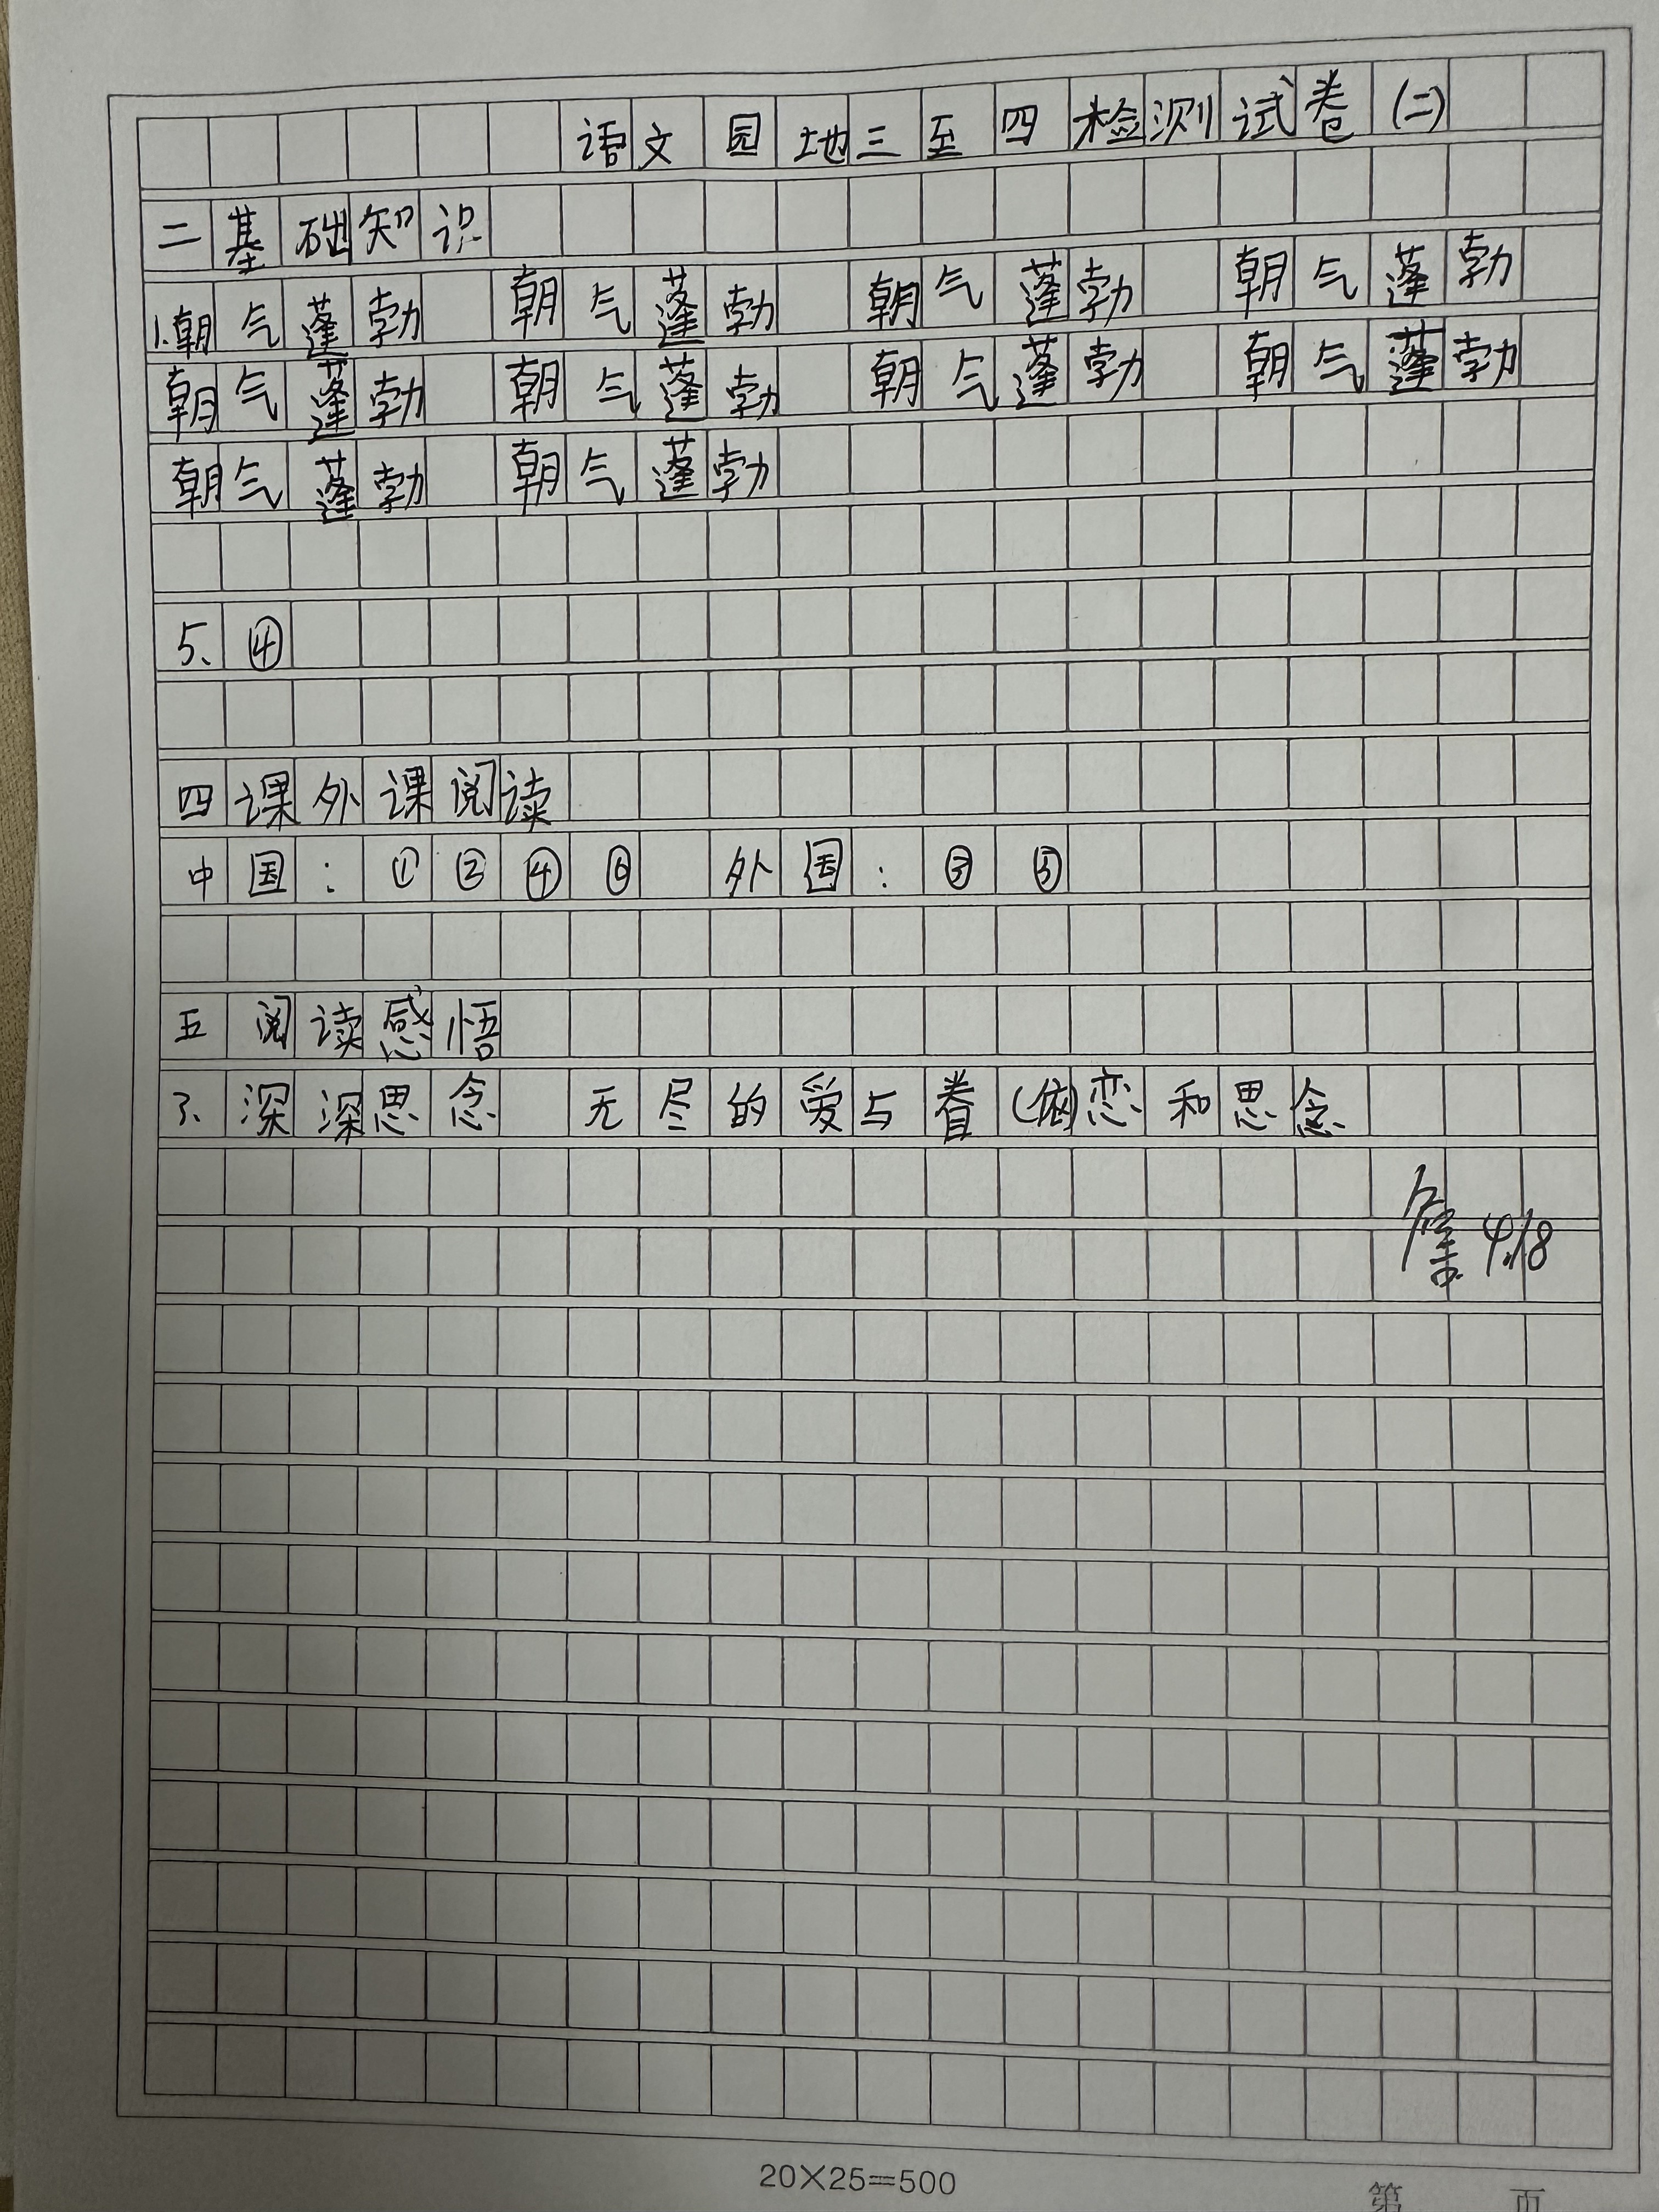 语文园地三至四检测试卷(二)
二基础知识
1.朝气蓬勃 朝气蓬勃 朝气蓬勃 朝气蓬勃
朝气蓬勃 朝气蓬勃 朝气蓬勃 朝气蓬勃
朝气蓬勃 朝气蓬勃
5、④
四课外课阅读
中国：①②④⑥ 外国：③⑤
五阅读感悟
3、深深思念 无尽的爱与眷(依)恋和思念
4.18
20×25=500
第 页